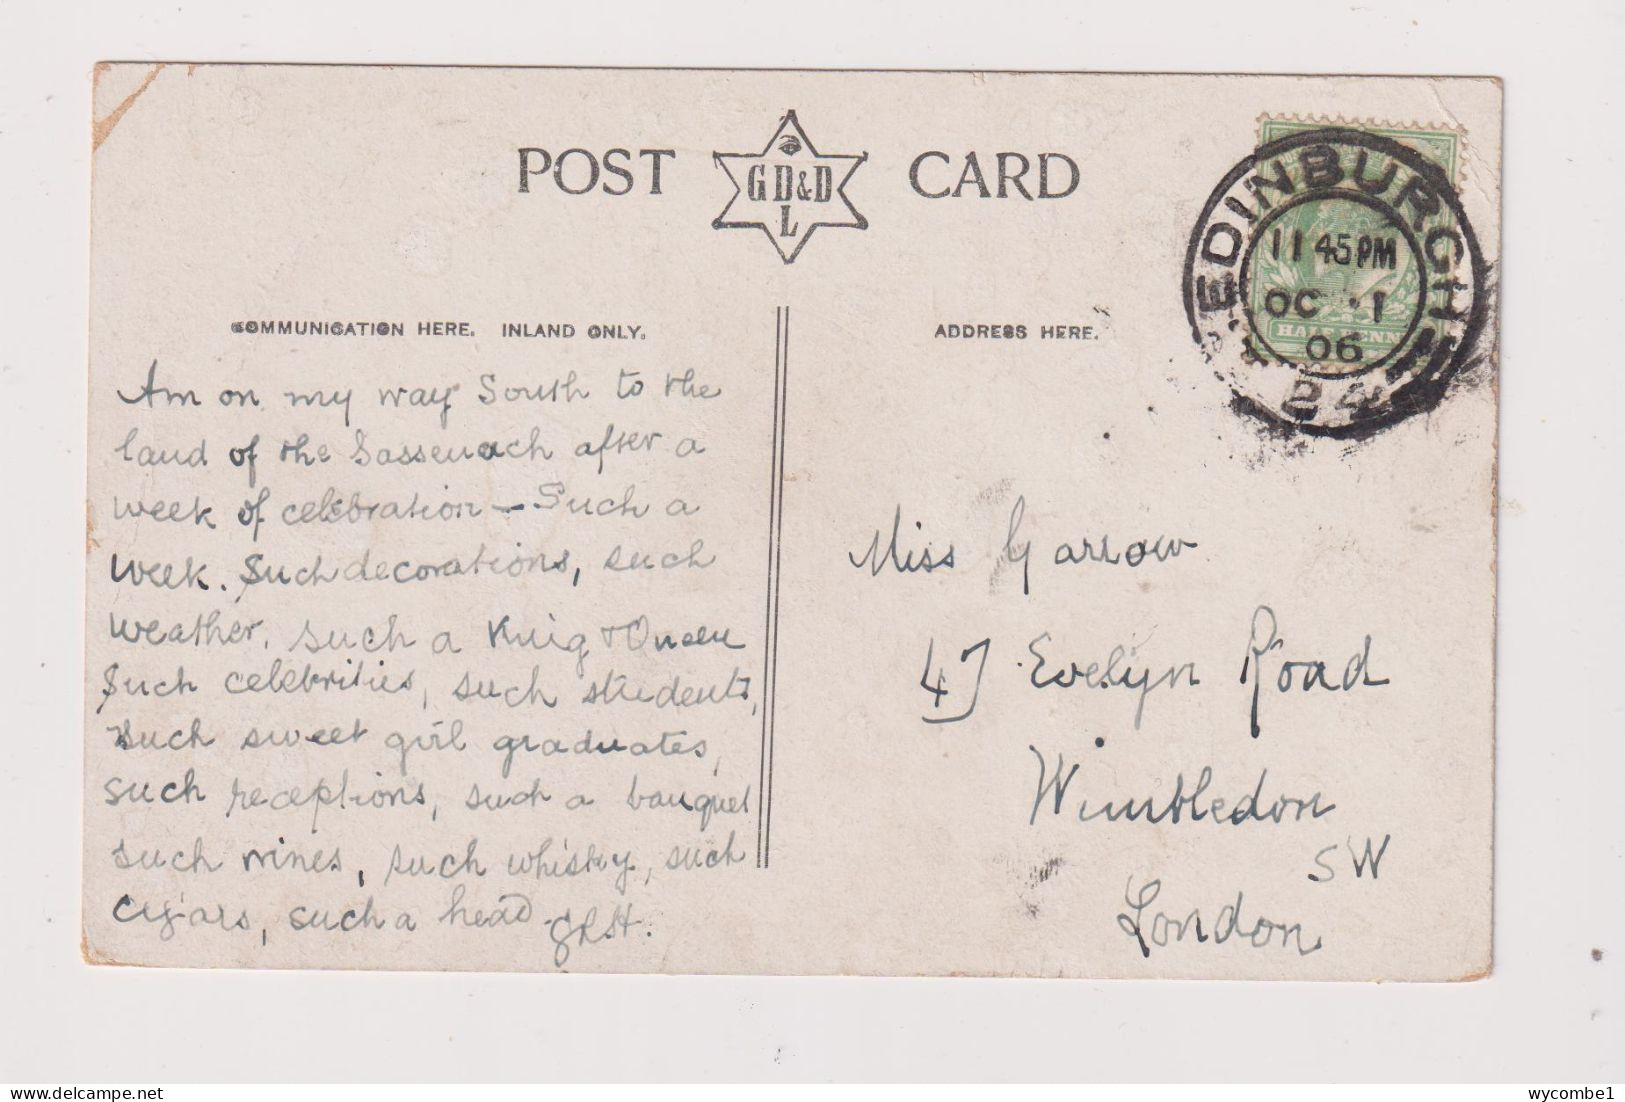 POST CARD
G D & D
L
EDINBURGH
11 45 PM
OC 1
06
24
HALF PENN
COMMUNICATION HERE. INLAND ONLY.
ADDRESS HERE.
Am on my way South to the
land of the Sassenach after a
week of celebration — Such a
week. Such decorations, such
weather, such a King & Queen
Such celebrities, such students,
such sweet girl graduates,
such receptions, such a banquet
such wines, such whisky, such
cigars, such a head.
Miss Garrow
47 Evelyn Road
Wimbledon
SW
London
wycombe1